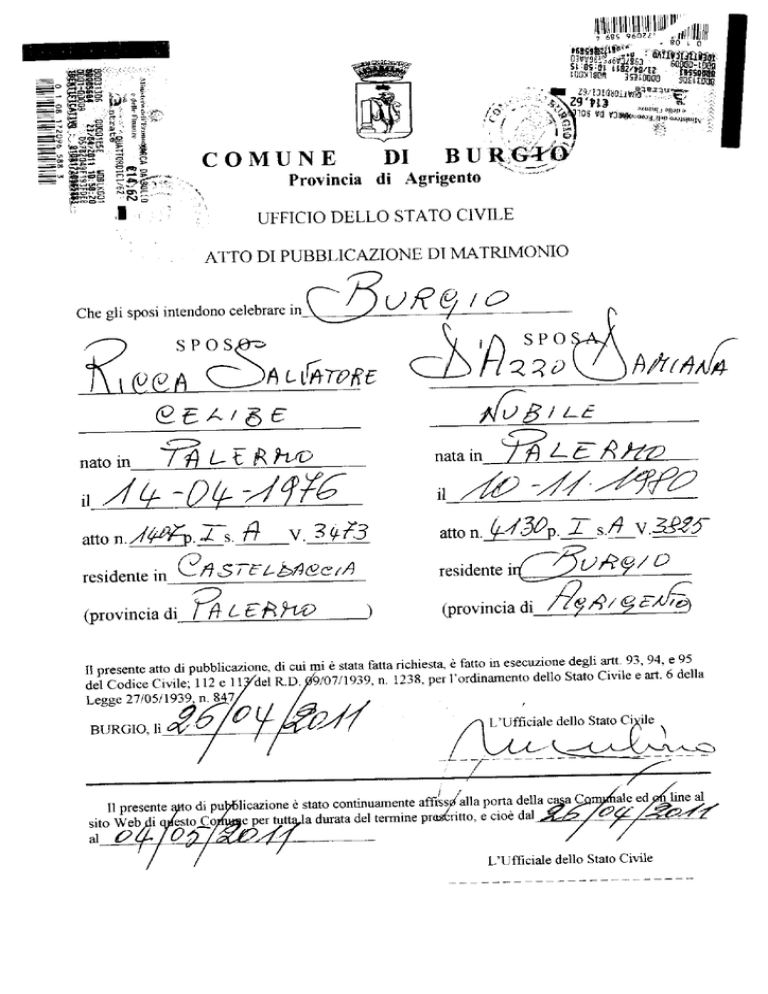 Ministero dell'Economia e delle Finanze
MARCA DA BOLLO
€14,62
QUATTORDICI/62
Entrate
00011306 00001E5E W0BLK001
IDENTIFICATIVO :
0 1 08 172096 588 3
Ministero dell'Economia e delle Finanze
MARCA DA BOLLO
€14,62
QUATTORDICI/62
Entrate
IDENTIFICATIVO :
COMUNE DI BURGIO
Provincia di Agrigento
UFFICIO DELLO STATO CIVILE
ATTO DI PUBBLICAZIONE DI MATRIMONIO
Che gli sposi intendono celebrare in BURGIO
SPOSO
RICCA SALVATORE
CELIBE
nato in PALERMO
il 14-04-1976
atto n. 1407 p. I s. A V. 3473
residente in CASTELDACCIA
(provincia di PALERMO )
SPOSA
D'AZZO DAMIANA
NUBILE
nata in PALERMO
il 10-11-1980
atto n. 4130 p. I s. A V. 3825
residente in BURGIO
(provincia di AGRIGENTO)
Il presente atto di pubblicazione, di cui mi è stata fatta richiesta, è fatto in esecuzione degli artt. 93, 94, e 95
del Codice Civile; 112 e 113 del R.D. 09/07/1939, n. 1238, per l'ordinamento dello Stato Civile e art. 6 della
Legge 27/05/1939, n. 847
BURGIO, li 26/04/2011
L'Ufficiale dello Stato Civile
Il presente atto di pubblicazione è stato continuamente affisso alla porta della casa Comunale ed on line al
sito Web di questo Comune per tutta la durata del termine prescritto, e cioè dal 26/04/2011
al 04/05/2011
L'Ufficiale dello Stato Civile